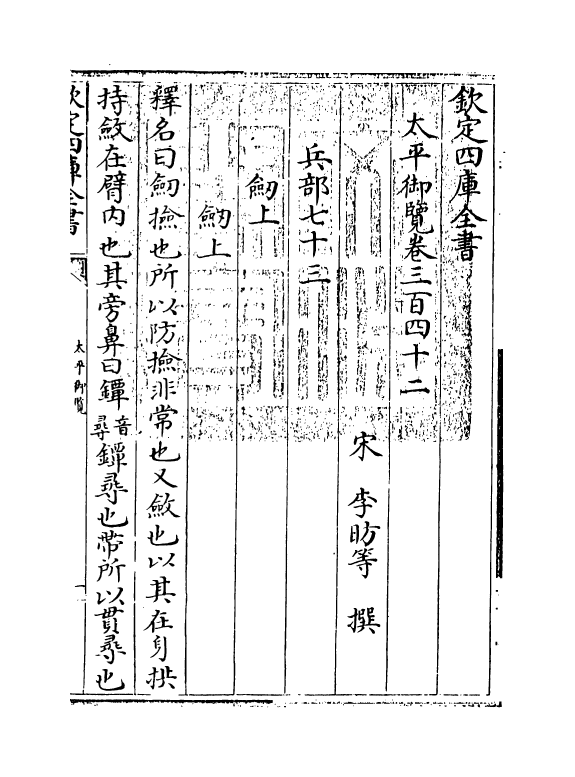 欽定四庫全書
太平御覽卷三百四十二
宋 李昉等 撰
兵部七十三
劒上
劒上
釋名曰劒撿也所以防撿非常也又斂也以其在身拱
持斂在臂内也其旁鼻曰鐔音尋鐔尋也帶所以貫尋也
欽定四庫全書
太平御覽
一